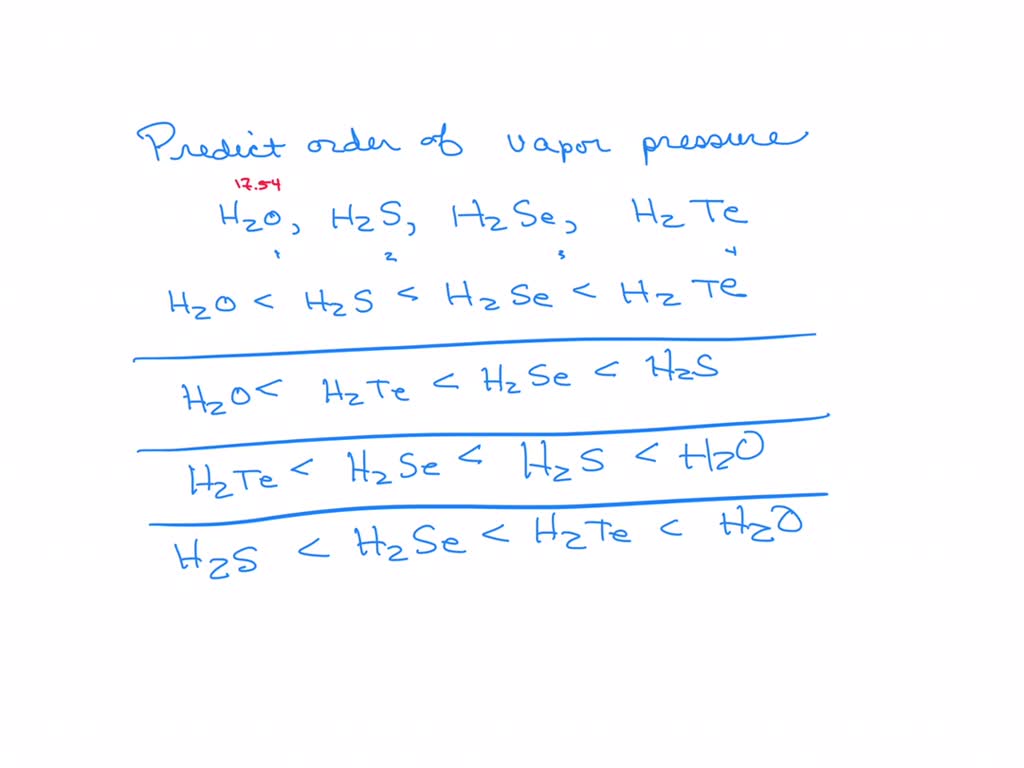 Predict order of vapor pressure
17.54
H2O, H2S, H2Se, H2Te
1 2 3 4
H2O < H2S < H2Se < H2Te
H2O < H2Te < H2Se < H2S
H2Te < H2Se < H2S < H2O
H2S < H2Se < H2Te < H2O